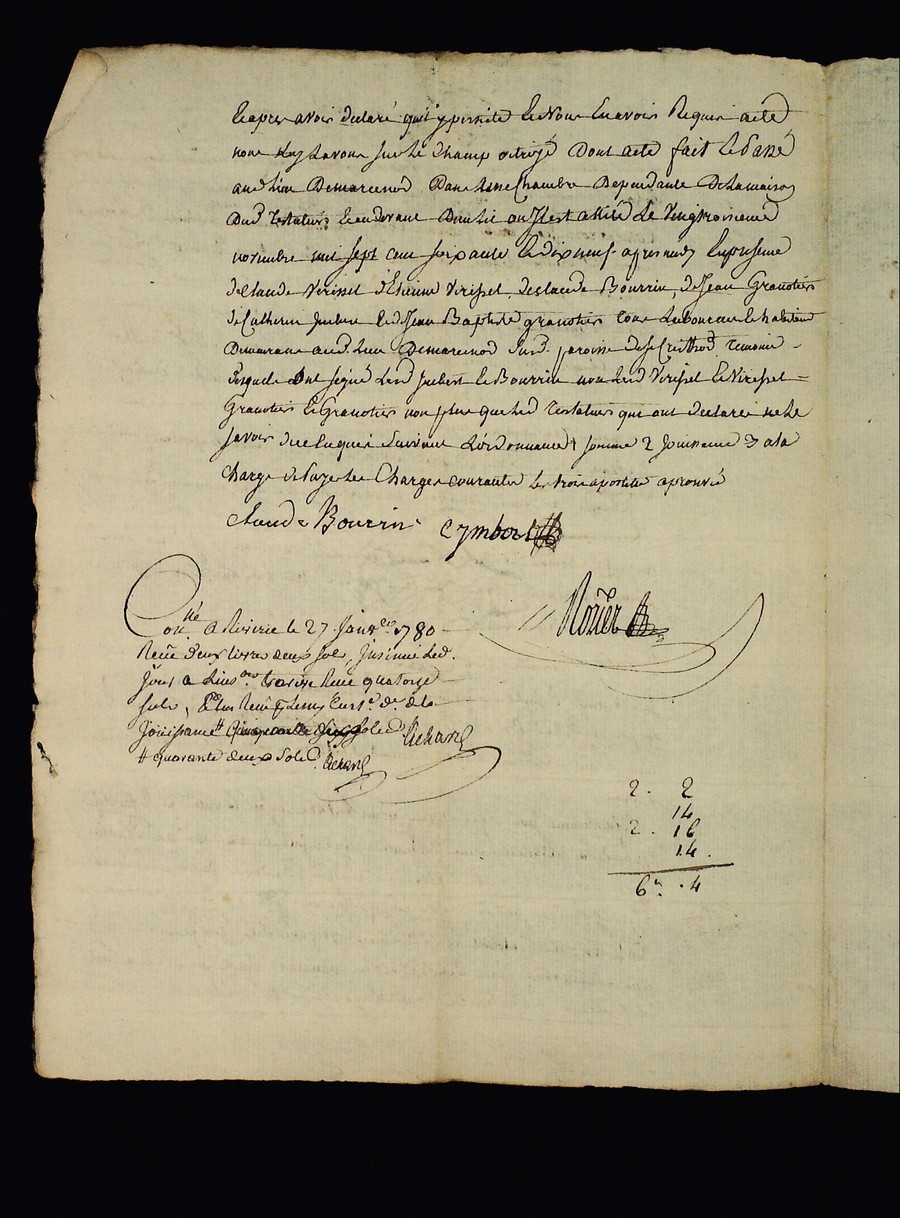 Et apres avoir declaré quil y persiste Et Nous En avoir Requis acte
nous Luy Lavons sur Le Champ octroyé Dont acte fait Et Passé
aud Lieu Demarcenod Dans Une Chambre Dependante De La maison
Dud Testateur Et au devant Dun Lit ou Il est allité Le Vingtroisieme
novembre mil sept cent soixante Et dix neuf apres midy En presence
de Claude Verisset d'Etienne Verisset, de Claude Bourrin, de Jean Granotier
de Jubert Et de Jean Baptiste granotier tous Laboureurs Et habitans
Demeurant aud. Lieu Demarcenod Susd. paroisse de temoins
Lesquels ont signé Lesd Jubert Et Bourrin non Lesd Verisset Et Verisset
Granotier Et Granotier non plus que Led Testateur qui ont declaré ne Le
savoir de ce Enquis Suivant L'ordonnance 1 somme 2 Jouissance 3 a la
Charge de Payer Les Charges courantes Les trois apostilles aprouvée
claude Bourrin
Con.né A Riverie le 27 Janv.er 1780
Receu deux livres deux sols, Insinué Led.
Jour a Receu quatorze
sols, Receu de la
Jouissance # sols
# quarante deux sols
2. 2
14
2. 16
14.
6# .4